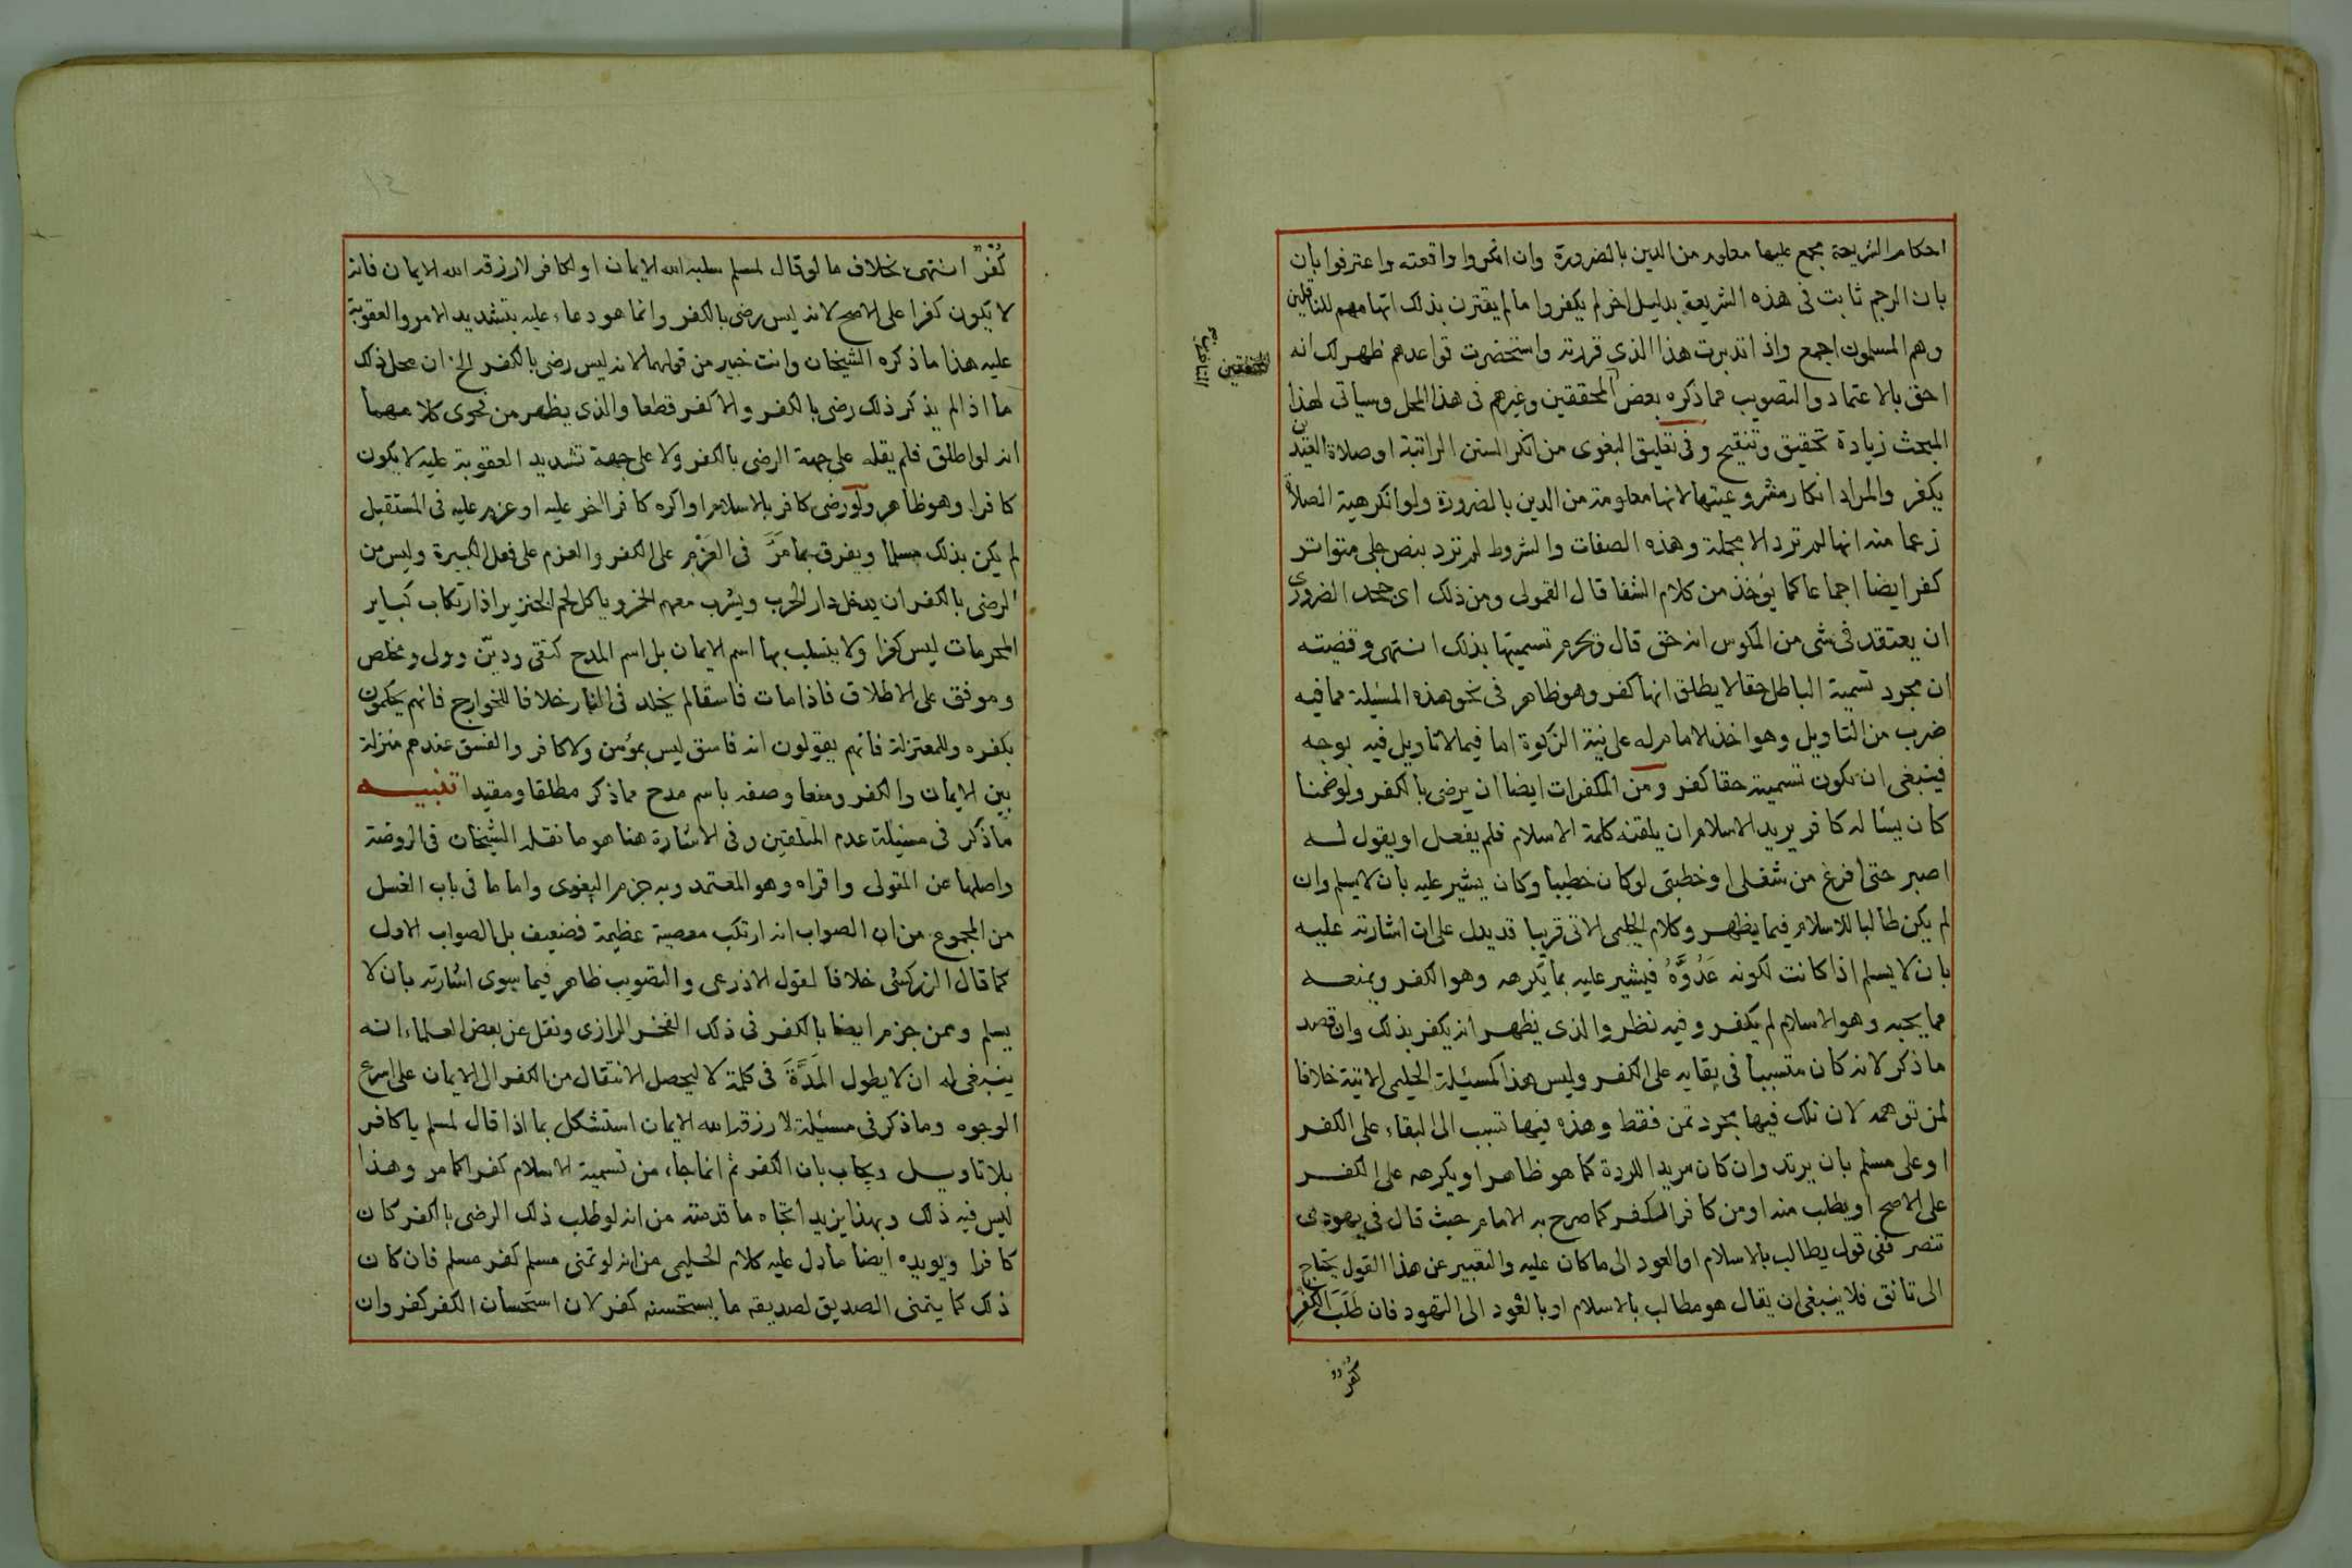 احكام الشريعة مجمع عليها معلوم من الدين بالضرورة وان انكروا واقعته واعترفوا بان
بان الرجم ثابت فى هذه الشريعة بدليل اخر لم يكفروا ما لم يقترن بذلك اتهامهم للناقلين
وهم المسلمون اجمع واذا تدبرت هذا الذي قررته واستحضرت قواعدهم ظهر لك انه
احق بالاعتماد والتصويب مما ذكره بعض المحققين وغيرهم فى هذا المحل وسياتى لهذا
المبحث زيادة تحقيق وتنقيح وفى تعليق البغوى من انكر السنن الراتبة او صلاة العيدين
يكفر والمراد انكار مشروعيتها لانها معلومة من الدين بالضرورة ولو انكر هيئة الصلاة
زعما منه انها لم ترد الا مجملة وهذه الصفات والشروط لم ترد بنص جلى متواتر
كفر ايضا اجماعا كما يؤخذ من كلام الشفا قال القمولى ومن ذلك اى جحد الضرورى
ان يعتقد فى شى من المكوس انه حق قال ويحرم تسميتها بذلك انتهى وقضيته
ان مجرد تسمية الباطل حقا لا يطلق انها كفر وهو ظاهر فى نحو هذه المسئلة مما فيه
ضرب من التاويل وهو اخذ الامام له على نية الزكوة اما فيما لا تاويل فيه بوجه
فينبغى ان تكون تسميته حقا كفر ومن المكفرات ايضا ان يرضى بالكفر ولو ضمنا
كان يسئاله كافر يريد الاسلام ان يلقنه كلمة الاسلام فلم يفعل او يقول له
اصبر حتى افرغ من شغلى او خطبتى لو كان خطيبا وكان يشير عليه بان لا يسلم وان
لم يكن طالبا للاسلام فيما يظهر وكلام الحليمى الاتى قريبا قد يدل على ان اشارته عليه
بان لا يسلم اذا كانت لكونه عَدُوَّهُ فيشير عليه بما يكرهه وهو الكفر ويمنعه
مما يحبه وهو الاسلام لم يكفر وفيه نظر والذى يظهر انه يكفر بذلك وان قصد
ما ذكر لانه كان متسببا فى بقايه على الكفر وليس هذا كمسئلة الحليمى الاتية خلافا
لمن توهمه لان تلك فيها مجرد تمن فقط وهذه فيها تسبب الى البقاء على الكفر
او على مسلم بان يرتد وان كان مريدا للردة كما هو ظاهر او يكرهه على الكفر
على الاصح او يطلب منه او من كافر الكفر كما صرح به الامام حيث قال فى يهودى
تنصر ففى قول يطالب بالاسلام او العود الى ما كان عليه والتعبير عن هذا القول يحتاج
الى تانق فلا ينبغى ان يقال هو مطالب بالاسلام او بالعود الى التهود فان طَلَبَ الكفرِ
كفرٌ
المحققين
كُفرٌ انتهى بخلاف ما لو قال لمسلم سلبه الله الايمان او لكافر لا رزقه الله الايمان فانه
لا يكون كفرا على الاصح لانه ليس رضى بالكفر وانما هو دعاء عليه بتشديد الامر والعقوبة
عليه هذا ما ذكره الشيخان وانت خبير من قولهما لانه ليس رضى بالكفر الخ ان محل ذلك
ما اذا لم يذكر ذلك رضى بالكفر والا كفر قطعا والذى يظهر من فحوى كلامهما
انه لو اطلق فلم يقله على جهة الرضى بالكفر ولا على جهة تشديد العقوبة عليه لا يكون
كافرا وهو ظاهر ولو رضى كافر بالاسلام او اكره كافرا اخر عليه او عزم عليه فى المستقبل
لم يكن بذلك مسلما ويفرق بما مَرَّ فى العَزْم على الكفر والعزم على فعل الكبيرة وليس من
الرضى بالكفر ان يدخل دار الحرب ويشرب معهم الخمر وياكل لحم الخنزير اذ ارتكاب كباير
المحرمات ليس كفرا ولا ينسلب بها اسم الايمان بل اسم المدح كتقى وديّن وولى ومخلص
وموفق على الاطلاق فاذا مات فاسقا لم يخلد فى النار خلافا للخوارج فانهم يحكمون
بكفره وللمعتزلة فانهم يقولون انه فاسق ليس بمؤمن ولا كافر والفسق عندهم منزلة
بين الايمان والكفر ومنعا وصفه باسم مدح مما ذكر مطلقا ومقيدا تنبيه
ما ذكر فى مسئلة عدم التلقين وفى الاشارة هنا هو ما نقله الشيخان فى الروضة
واصلها عن المتولى واقراه وهو المعتمد وبه جزم البغوى واما ما فى باب الغسل
من المجموع من ان الصواب انه ارتكب معصية عظيمة فضعيف بل الصواب الاول
كما قال الزركشى خلافا لقول الاذرعى والتصويب ظاهر فيما سوى اشارته بان لا
يسلم وممن جزم ايضا بالكفر فى ذلك الفخر الرازى ونقل عن بعض العلماء انه
ينبغى له ان لا يطول المَدَّةَ فى كلمة لا ليحصل الانتقال من الكفر الى الايمان على اسرع
الوجوه وما ذكر فى مسئلة لا رزقه الله الايمان استشكل بما اذا قال لمسلم يا كافر
بلا تاويل ويجاب بان الكفر ثم انما جاء من تسمية الاسلام كفرا كما مر وهذا
ليس فيه ذلك وبهذا يزيد اتجاه ما قدمته من انه لو طلب ذلك الرضى بالكفر كان
كافرا ويويده ايضا ما دل عليه كلام الحليمى من انه لو تمنى مسلم كفر مسلم فان كان
ذلك كما يتمنى الصديق لصديقه ما يستحسنه كفر لان استحسان الكفر كفر وان